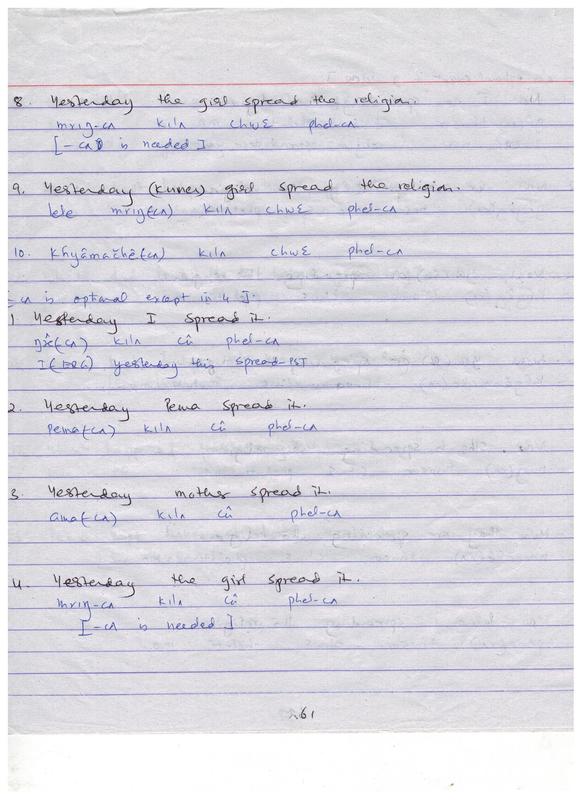 8. Yesterday the girl spread the religion.
mrɪŋ-cʌ kɪlʌ chwɛ phel-cʌ
[-cʌ is needed]
9. Yesterday (Kunes) girl spread the religion.
mrɪŋ(cʌ) kɪlʌ chwɛ phel-cʌ
10. Khyâmačhê(cʌ) kɪlʌ chwɛ phel-cʌ
[cʌ is optional except in 4].
1 Yesterday I spread it.
kɪlʌ cû phel-cʌ
I(ERG) yesterday this spread-PST
2. Yesterday Pema spread it.
Pema(-cʌ) kɪlʌ cû phel-cʌ
3. Yesterday mother spread it.
ama(-cʌ) kɪlʌ cû phel-cʌ
4. Yesterday the girl spread it.
mrɪŋ-cʌ kɪlʌ cû phel-cʌ
[-cʌ is needed]
61